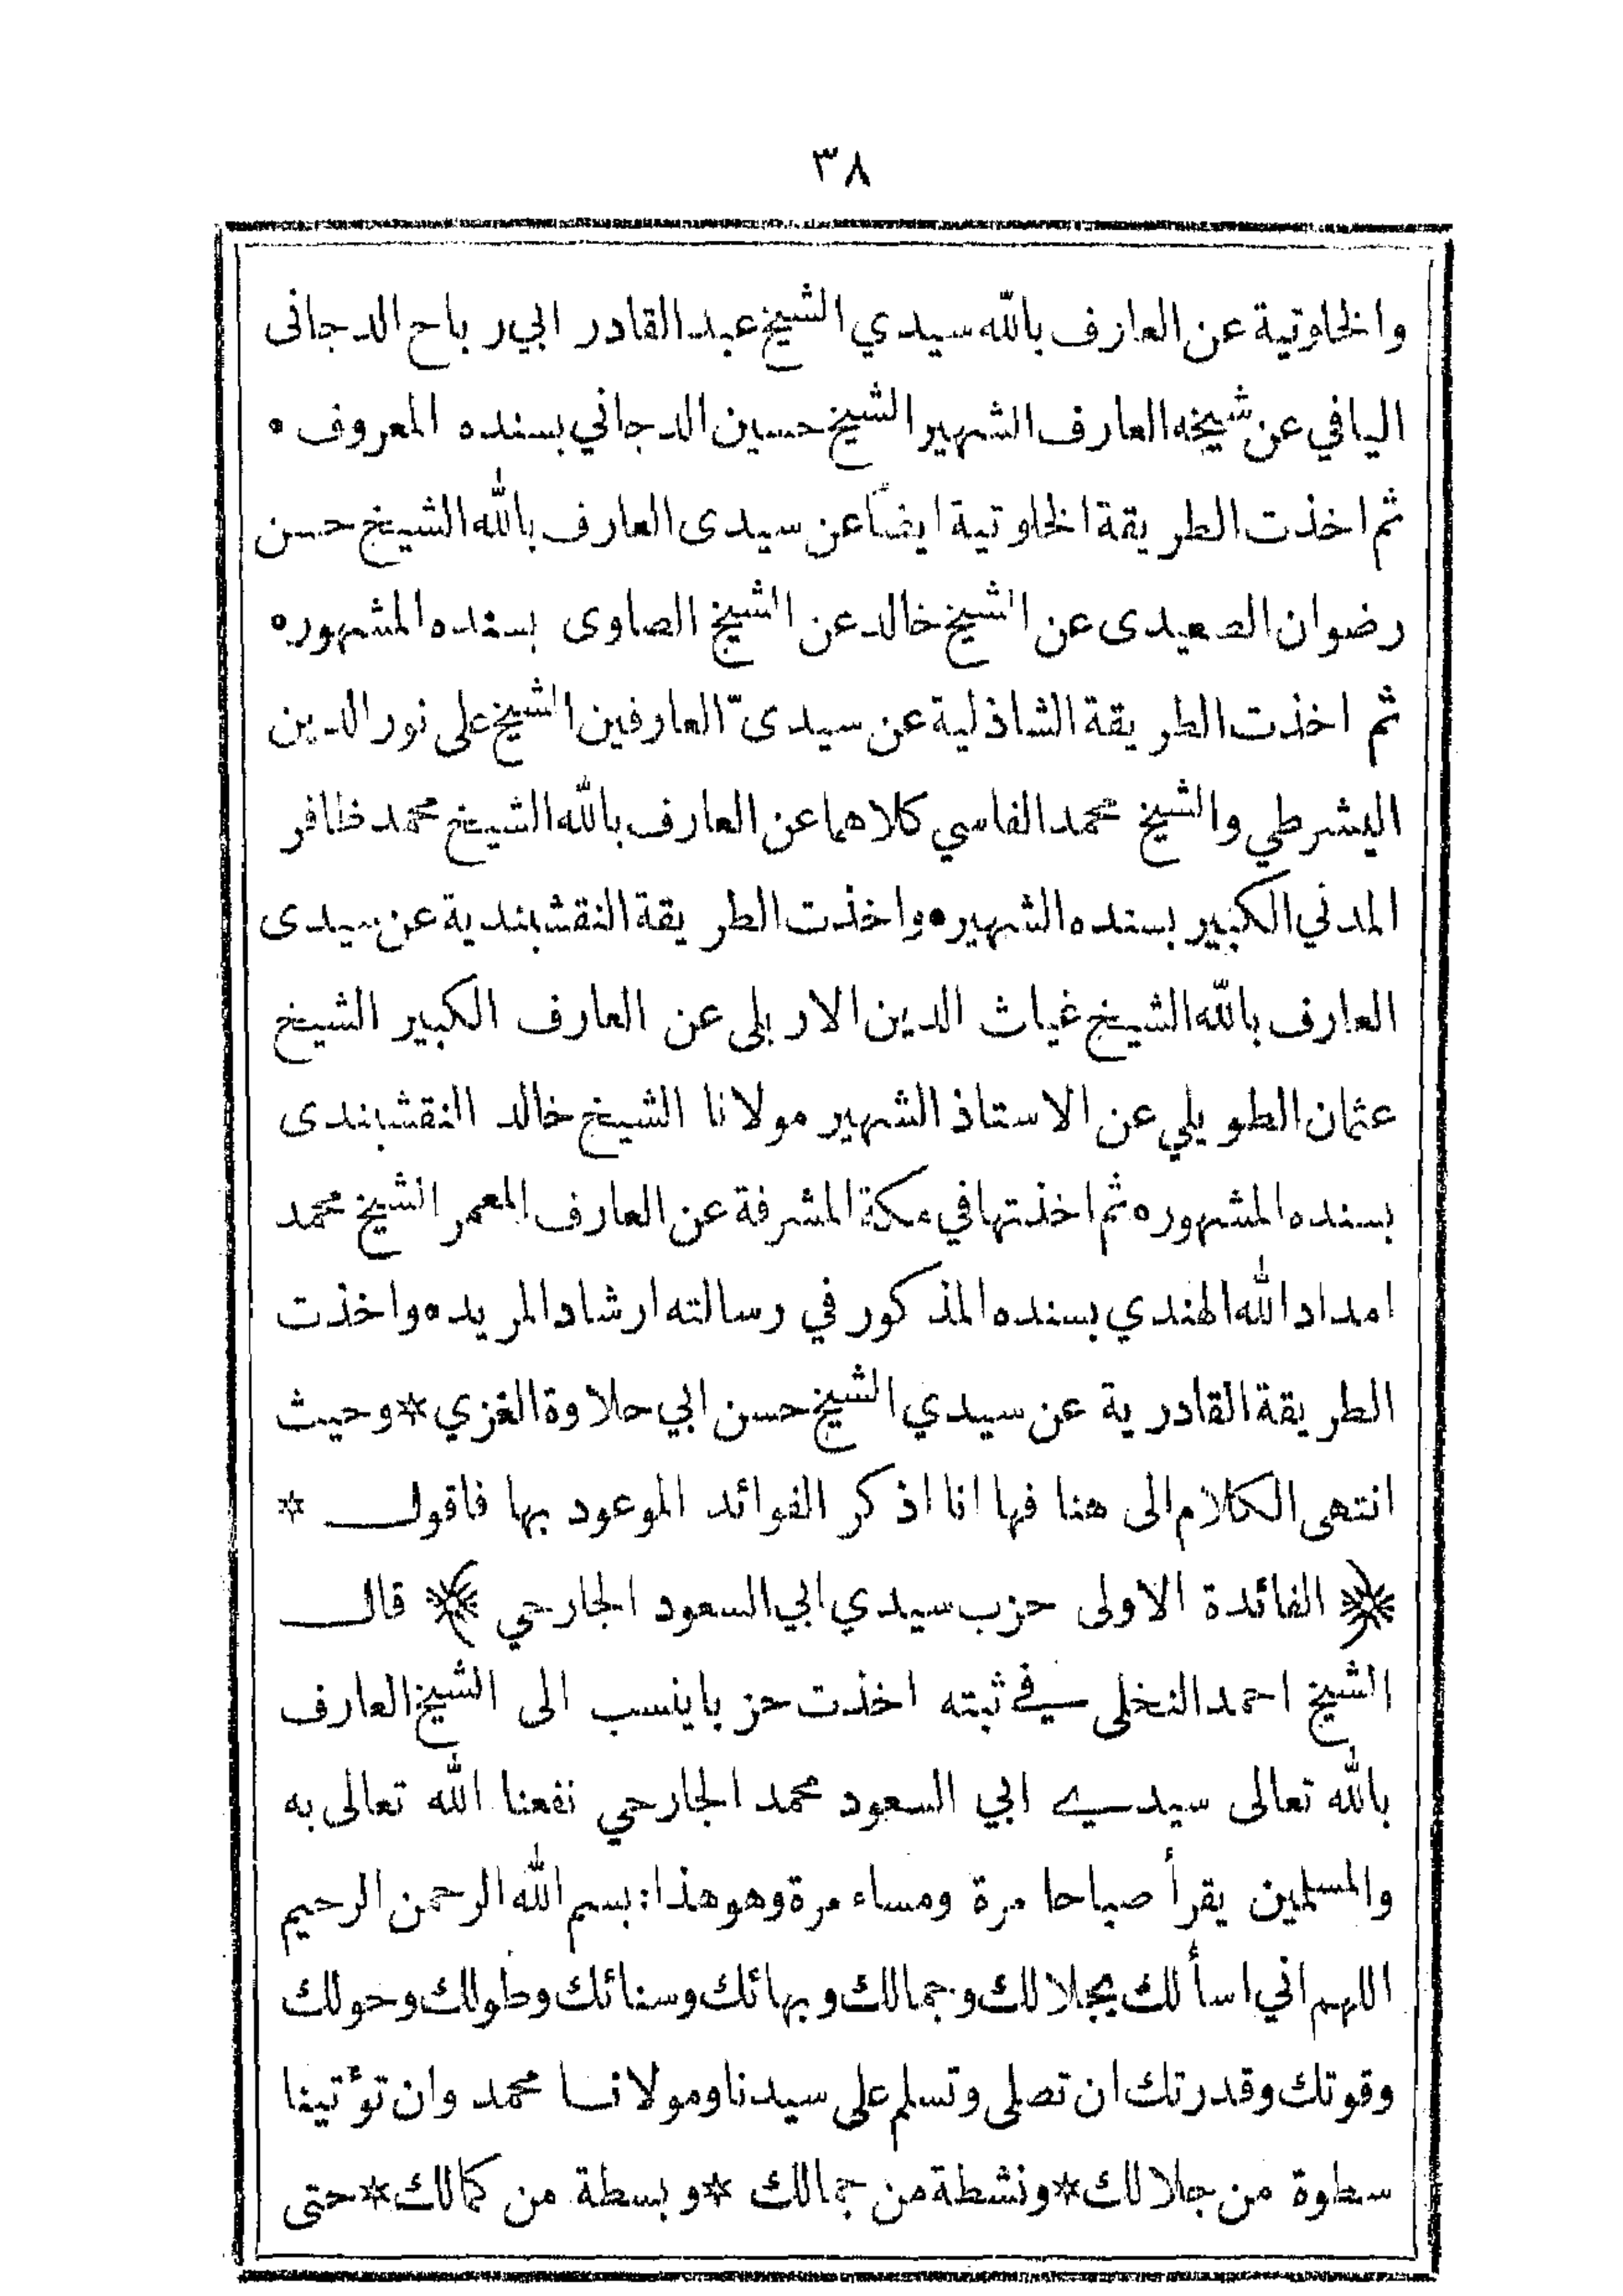 ٣٨
والخلوتية عن العارف بالله سيدي الشيخ عبد القادر ابي رباح الدجانى
اليافي عن شيخه العارف الشهير الشيخ حسين الدجاني بسنده المعروف •
ثم اخذت الطريقة الخلوتية ايضاً عن سيدى العارف بالله الشيخ حسن
رضوان الصعيدى عن الشيخ خالد عن الشيخ الصاوى بسنده المشهور •
ثم اخذت الطريقة الشاذلية عن سيدىّ العارفين الشيخ على نور الدين
اليشرطي والشيخ محمد الفاسي كلاهما عن العارف بالله الشيخ محمد ظافر
المدني الكبير بسنده الشهير • واخذت الطريقة النقشبندية عن سيدى
العارف بالله الشيخ غياث الدين الاربلى عن العارف الكبير الشيخ
عثمان الطويلي عن الاستاذ الشهير مولانا الشيخ خالد النقشبندى
بسنده المشهور • ثم اخذتها في مكة المشرفة عن العارف المعمر الشيخ محمد
امداد الله الهندي بسنده المذكور في رسالته ارشاد المريد • واخذت
الطريقة القادرية عن سيدي الشيخ حسن ابي حلاوة الغزي * وحيث
انتهى الكلام الى هنا فها انا اذكر الفوائد الموعود بها فاقول *
﴿ الفائدة الاولى حزب سيدي ابي السعود الجارحي ﴾ قال
الشيخ احمد النخلى في ثبته اخذت حزبا ينسب الى الشيخ العارف
بالله تعالى سيدي ابي السعود محمد الجارحي نفعنا الله تعالى به
والمسلمين يقرأ صباحا مرة ومساء مرة وهو هذا : بسم الله الرحمن الرحيم
اللهم اني اسألك بجلالك وجمالك وبهائك وسنائك وطولك وحولك
وقوتك وقدرتك ان تصلى وتسلم على سيدنا ومولانا محمد وان تؤتينا
سطوة من جلالك * ونشطة من جمالك * وبسطة من كمالك * حتى